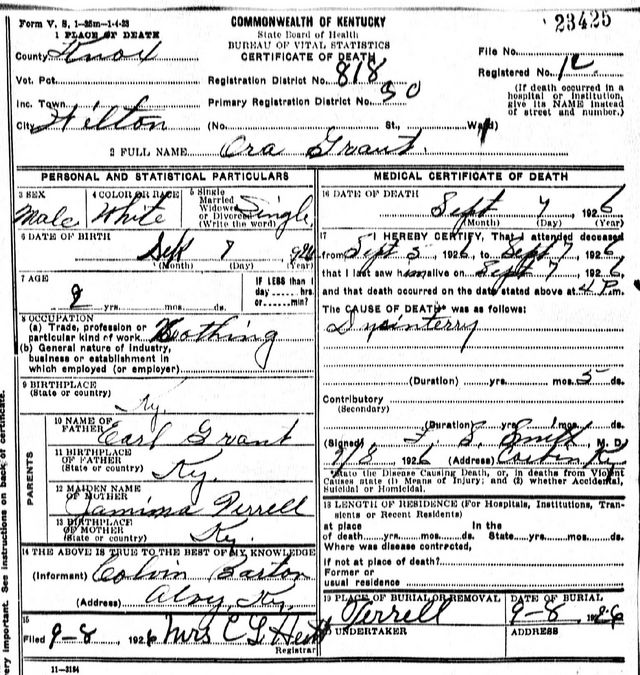 Form V. S. 1—25m—1-4-23
23425
COMMONWEALTH OF KENTUCKY
State Board of Health
BUREAU OF VITAL STATISTICS
CERTIFICATE OF DEATH
1 PLACE OF DEATH
County Knox
Vot. Pct.
Inc. Town
City Wilton
Registration District No. 818
Primary Registration District No. 30
(No. St., Ward)
File No.
Registered No. 12
(If death occurred in a
hospital or institution,
give its NAME instead
of street and number.)
2 FULL NAME Ora Grant
PERSONAL AND STATISTICAL PARTICULARS
3 SEX
Male
4 COLOR OR RACE
White
5 Single
Married
Widowed
or Divorced
(Write the word)
Single
6 DATE OF BIRTH
Sept 7
(Month) (Day) (Year)
7 AGE
yrs. mos. ds.
IF LESS than 1
day hrs.
or min?
8 OCCUPATION
(a) Trade, profession or
particular kind of work Noothing
(b) General nature of industry,
business or establishment in
which employed (or employer)
9 BIRTHPLACE
(State or country)
Ky.
PARENTS
10 NAME OF
FATHER
Earl Grant
11 BIRTHPLACE
OF FATHER
(State or country)
Ky.
12 MAIDEN NAME
OF MOTHER
Jamima Terrell
13 BIRTHPLACE
OF MOTHER
(State or country)
Ky.
14 THE ABOVE IS TRUE TO THE BEST OF MY KNOWLEDGE
(Informant) Colvin Barton
(Address) Ky.
15
Filed 9-8, 1926 Mrs C L
Registrar
11—3184
MEDICAL CERTIFICATE OF DEATH
16 DATE OF DEATH
Sept 7, 1926
(Month) (Day) (Year)
17 I HEREBY CERTIFY, That I attended deceased
from Sept 5, 1926, to Sept 7, 1926
that I last saw him alive on Sept 7, 1926,
and that death occurred on the date stated above at 4 P.m.
The CAUSE OF DEATH* was as follows:
Dysinterry
(Duration) yrs. mos. 5 ds.
Contributory
(Secondary)
(Duration) yrs. mos. ds.
(Signed) Smith, M. D.
9/8, 1926 (Address) Corbin Ky
*State the Disease Causing Death, or, in deaths from Violent
Causes state (1) Means of Injury; and (2) whether Accidental,
Suicidal or Homicidal.
18 LENGTH OF RESIDENCE (For Hospitals, Institutions, Tran-
sients or Recent Residents)
at place In the
of death yrs. mos. ds. State yrs. mos. ds.
Where was disease contracted,
if not at place of death?
Former or
usual residence
19 PLACE OF BURIAL OR REMOVAL
Terrell
DATE OF BURIAL
9-8 1926
20 UNDERTAKER
ADDRESS
very important. See instructions on back of certificate.